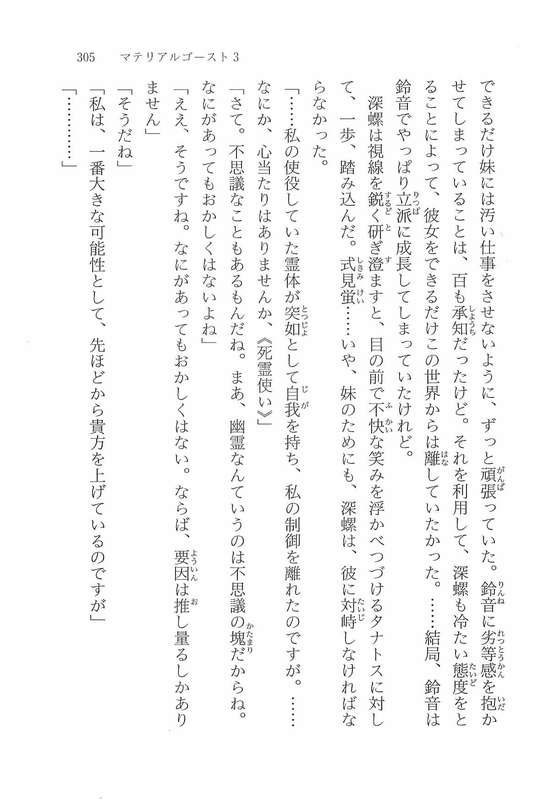 305　マテリアルゴースト3
できるだけ妹には汚い仕事をさせないように、ずっと頑張っていた。鈴音に劣等感を抱か
せてしまっていることは、百も承知だったけど。それを利用して、深螺も冷たい態度をと
ることによって、彼女をできるだけこの世界からは離していたかった。……結局、鈴音は
鈴音でやっぱり立派に成長してしまっていたけれど。
　深螺は視線を鋭く研ぎ澄ますと、目の前で不快な笑みを浮かべつづけるタナトスに対し
て、一歩、踏み込んだ。式見蛍……いや、妹のためにも、深螺は、彼に対峙しなければな
らなかった。
「……私の使役していた霊体が突如として自我を持ち、私の制御を離れたのですが。……
なにか、心当たりはありませんか、《死霊使い》」
「さて。不思議なこともあるもんだね。まあ、幽霊なんていうのは不思議の塊だからね。
なにがあってもおかしくはないよね」
「ええ、そうですね。なにがあってもおかしくはない。ならば、要因は推し量るしかあり
ません」
「そうだね」
「私は、一番大きな可能性として、先ほどから貴方を上げているのですが」
「…………」